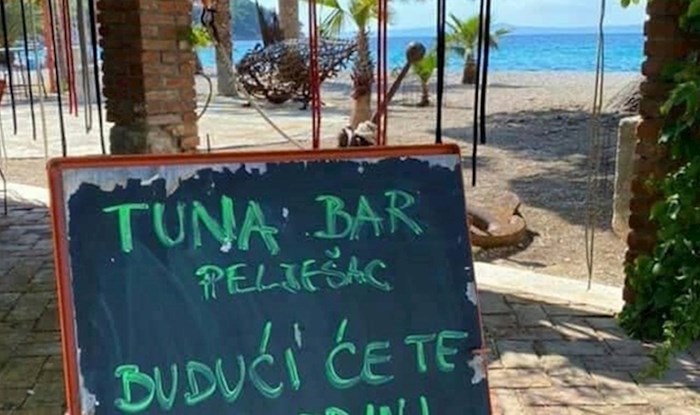 TUNA BAR
PELJEŠAC
BUDUĆI ĆE TE